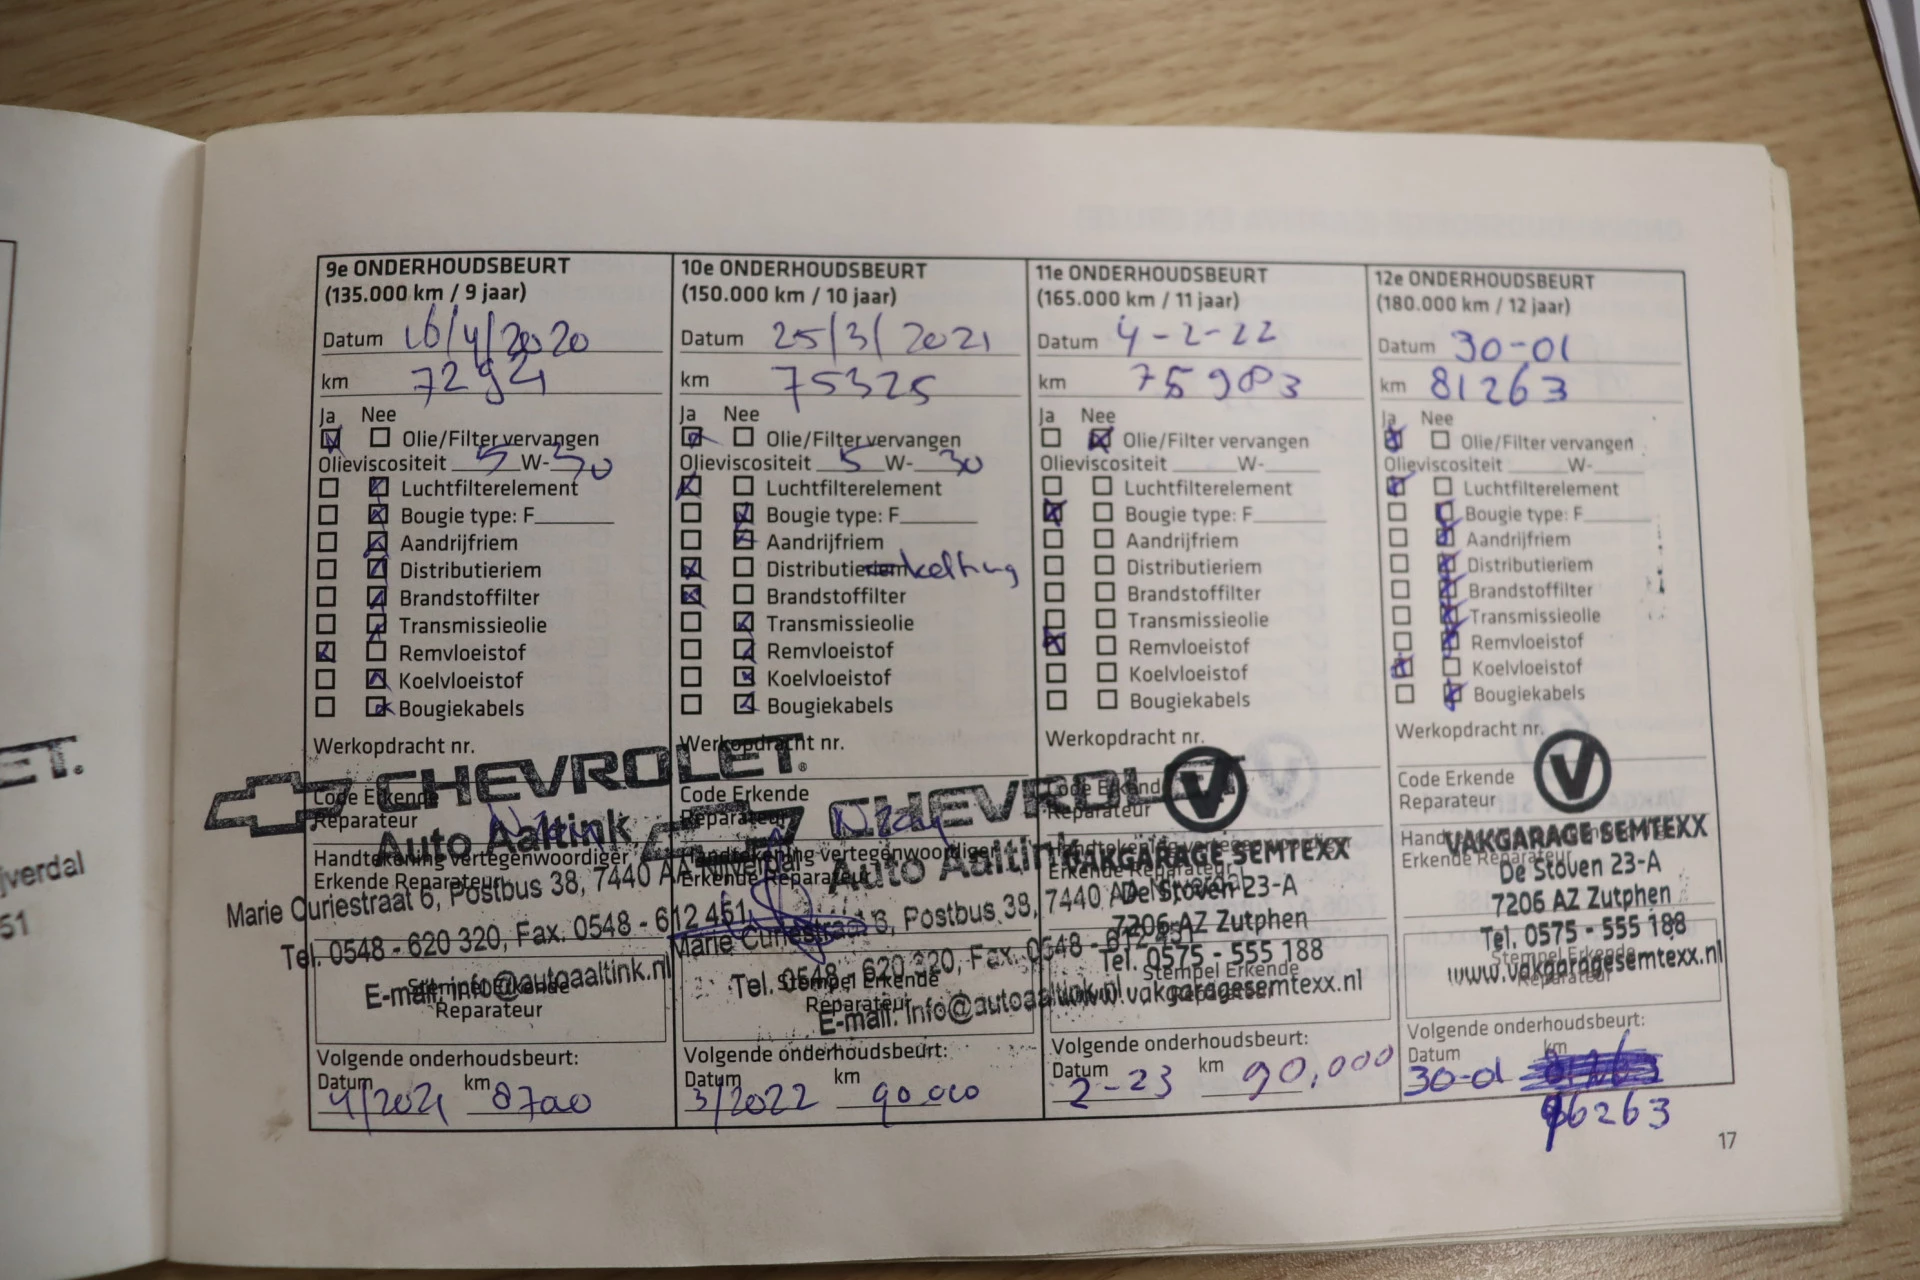 ET.
jverdal
51
9e ONDERHOUDSBEURT
(135.000 km / 9 jaar)
Datum 16/4/2020
km 7294
Ja Nee
Olie/Filter vervangen
Olieviscositeit 5 W- 30
Luchtfilterelement
Bougie type: F
Aandrijfriem
Distributieriem
Brandstoffilter
Transmissieolie
Remvloeistof
Koelvloeistof
Bougiekabels
Werkopdracht nr.
Code Erkende
Reparateur
Handtekening vertegenwoordiger
Erkende Reparateur
CHEVROLET
Auto Aaltink
Marie Curiestraat 6, Postbus 38, 7440 AA Nijverdal
Tel. 0548 - 620 320, Fax. 0548 - 612 451
E-mail: info@autoaaltink.nl
Stempel Erkende
Reparateur
Volgende onderhoudsbeurt:
Datum km
4/2021 87000
10e ONDERHOUDSBEURT
(150.000 km / 10 jaar)
Datum 25/3/2021
km 75325
Ja Nee
Olie/Filter vervangen
Olieviscositeit 5 W- 30
Luchtfilterelement
Bougie type: F
Aandrijfriem
Distributieriem ketting
Brandstoffilter
Transmissieolie
Remvloeistof
Koelvloeistof
Bougiekabels
Werkopdracht nr.
Code Erkende
Reparateur
Handtekening vertegenwoordiger
Erkende Reparateur
CHEVROL
Auto Aaltink
Marie Curiestraat 6, Postbus 38, 7440 AA Nijverdal
Tel. 0548 - 620 320, Fax. 0548 - 612 451
E-mail: info@autoaaltink.nl
Stempel Erkende
Reparateur
Volgende onderhoudsbeurt:
Datum km
3/2022 90.000
11e ONDERHOUDSBEURT
(165.000 km / 11 jaar)
Datum 4-2-22
km 75983
Ja Nee
Olie/Filter vervangen
Olieviscositeit W-
Luchtfilterelement
Bougie type: F
Aandrijfriem
Distributieriem
Brandstoffilter
Transmissieolie
Remvloeistof
Koelvloeistof
Bougiekabels
Werkopdracht nr.
Code Erkende
Reparateur
Handtekening vertegenwoordiger
Erkende Reparateur
V
VAKGARAGE SEMTEXX
De Stoven 23-A
7206 AZ Zutphen
Tel. 0575 - 555 188
www.vakgaragesemtexx.nl
Stempel Erkende
Reparateur
Volgende onderhoudsbeurt:
Datum km
2-23 90.000
12e ONDERHOUDSBEURT
(180.000 km / 12 jaar)
Datum 30-01
km 81263
Ja Nee
Olie/Filter vervangen
Olieviscositeit W-
Luchtfilterelement
Bougie type: F
Aandrijfriem
Distributieriem
Brandstoffilter
Transmissieolie
Remvloeistof
Koelvloeistof
Bougiekabels
Werkopdracht nr.
Code Erkende
Reparateur
Handtekening vertegenwoordiger
Erkende Reparateur
V
VAKGARAGE SEMTEXX
De Stoven 23-A
7206 AZ Zutphen
Tel. 0575 - 555 188
www.vakgaragesemtexx.nl
Stempel Erkende
Reparateur
Volgende onderhoudsbeurt:
Datum km
30-01
96263
17